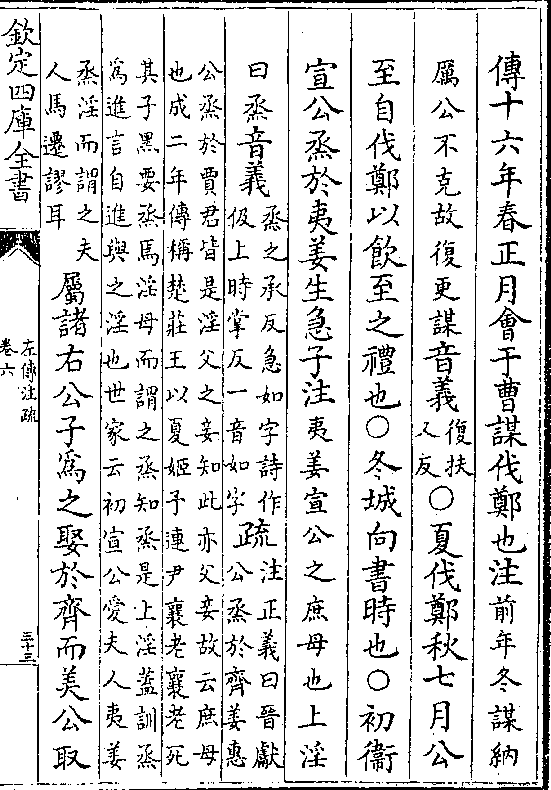 傳十六年春正月會于曹謀伐鄭也注前年冬謀納
厲公不克故復更謀音義
復扶
又反
○夏伐鄭秋七月公
至自伐鄭以飲至之禮也○冬城向書時也○初衞
宣公烝於夷姜生急子注夷姜宣公之庶母也上淫
曰烝音義
烝之承反急如字詩作
伋上時掌反一音如字
疏
注正義曰晉獻
公烝於齊姜惠
公烝於賈君皆是淫父之妾知此亦父妾故云庶母
也成二年傳稱楚莊王以夏姬予連尹襄老襄老死
其子黑要烝焉淫母而謂之烝知烝是上淫蓋訓烝
爲進言自進與之淫也世家云初宣公愛夫人夷姜
烝淫而謂之夫
人馬遷謬耳
屬諸右公子爲之娶於齊而美公取
欽定四庫全書
左傳注疏
卷六
三十三